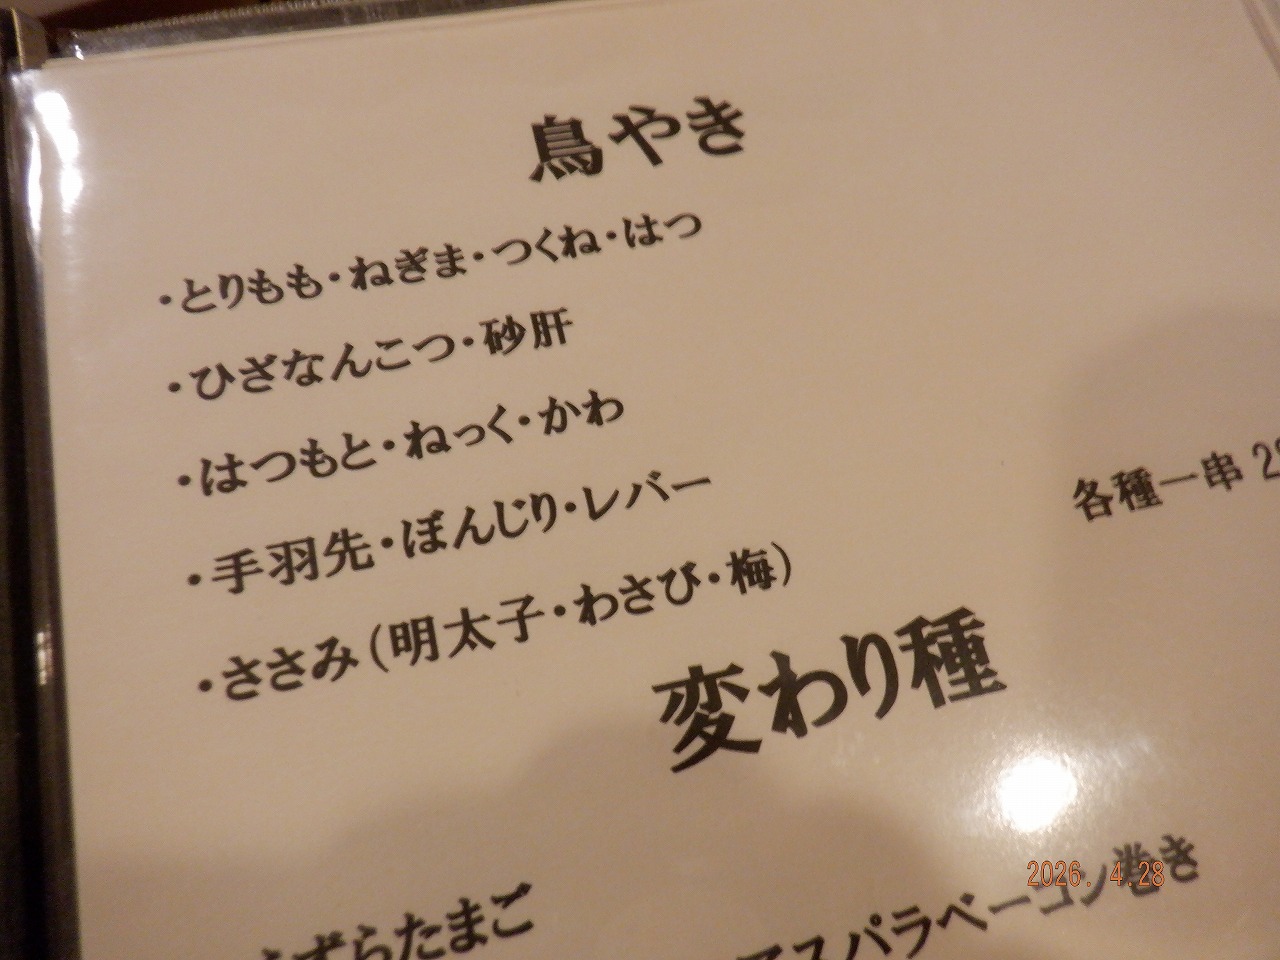 鳥やき
・とりもも・ねぎま・つくね・はつ
・ひざなんこつ・砂肝
・はつもと・ねっく・かわ
・手羽先・ぼんじり・レバー
各種一串 2
・ささみ(明太子・わさび・梅)
変わり種
うずらたまご
アスパラベーコン巻き
2026. 4.28